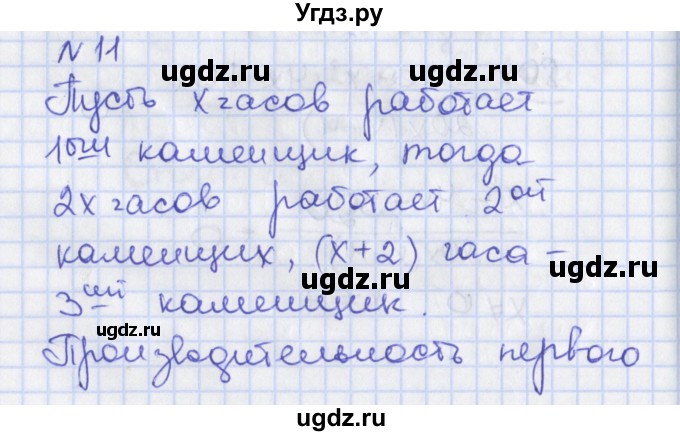 Угдз.ру
N 11
ugdz.ru ugdz.ru
Пусть x часов работает
1ый каменщик, тогда
ugdz.ru ugdz.ru
2x часов работает 2ой
каменщик, (x+2) часа –
ugdz.ru ugdz.ru
3ий каменщик.
Производительность первого
ugdz.ru